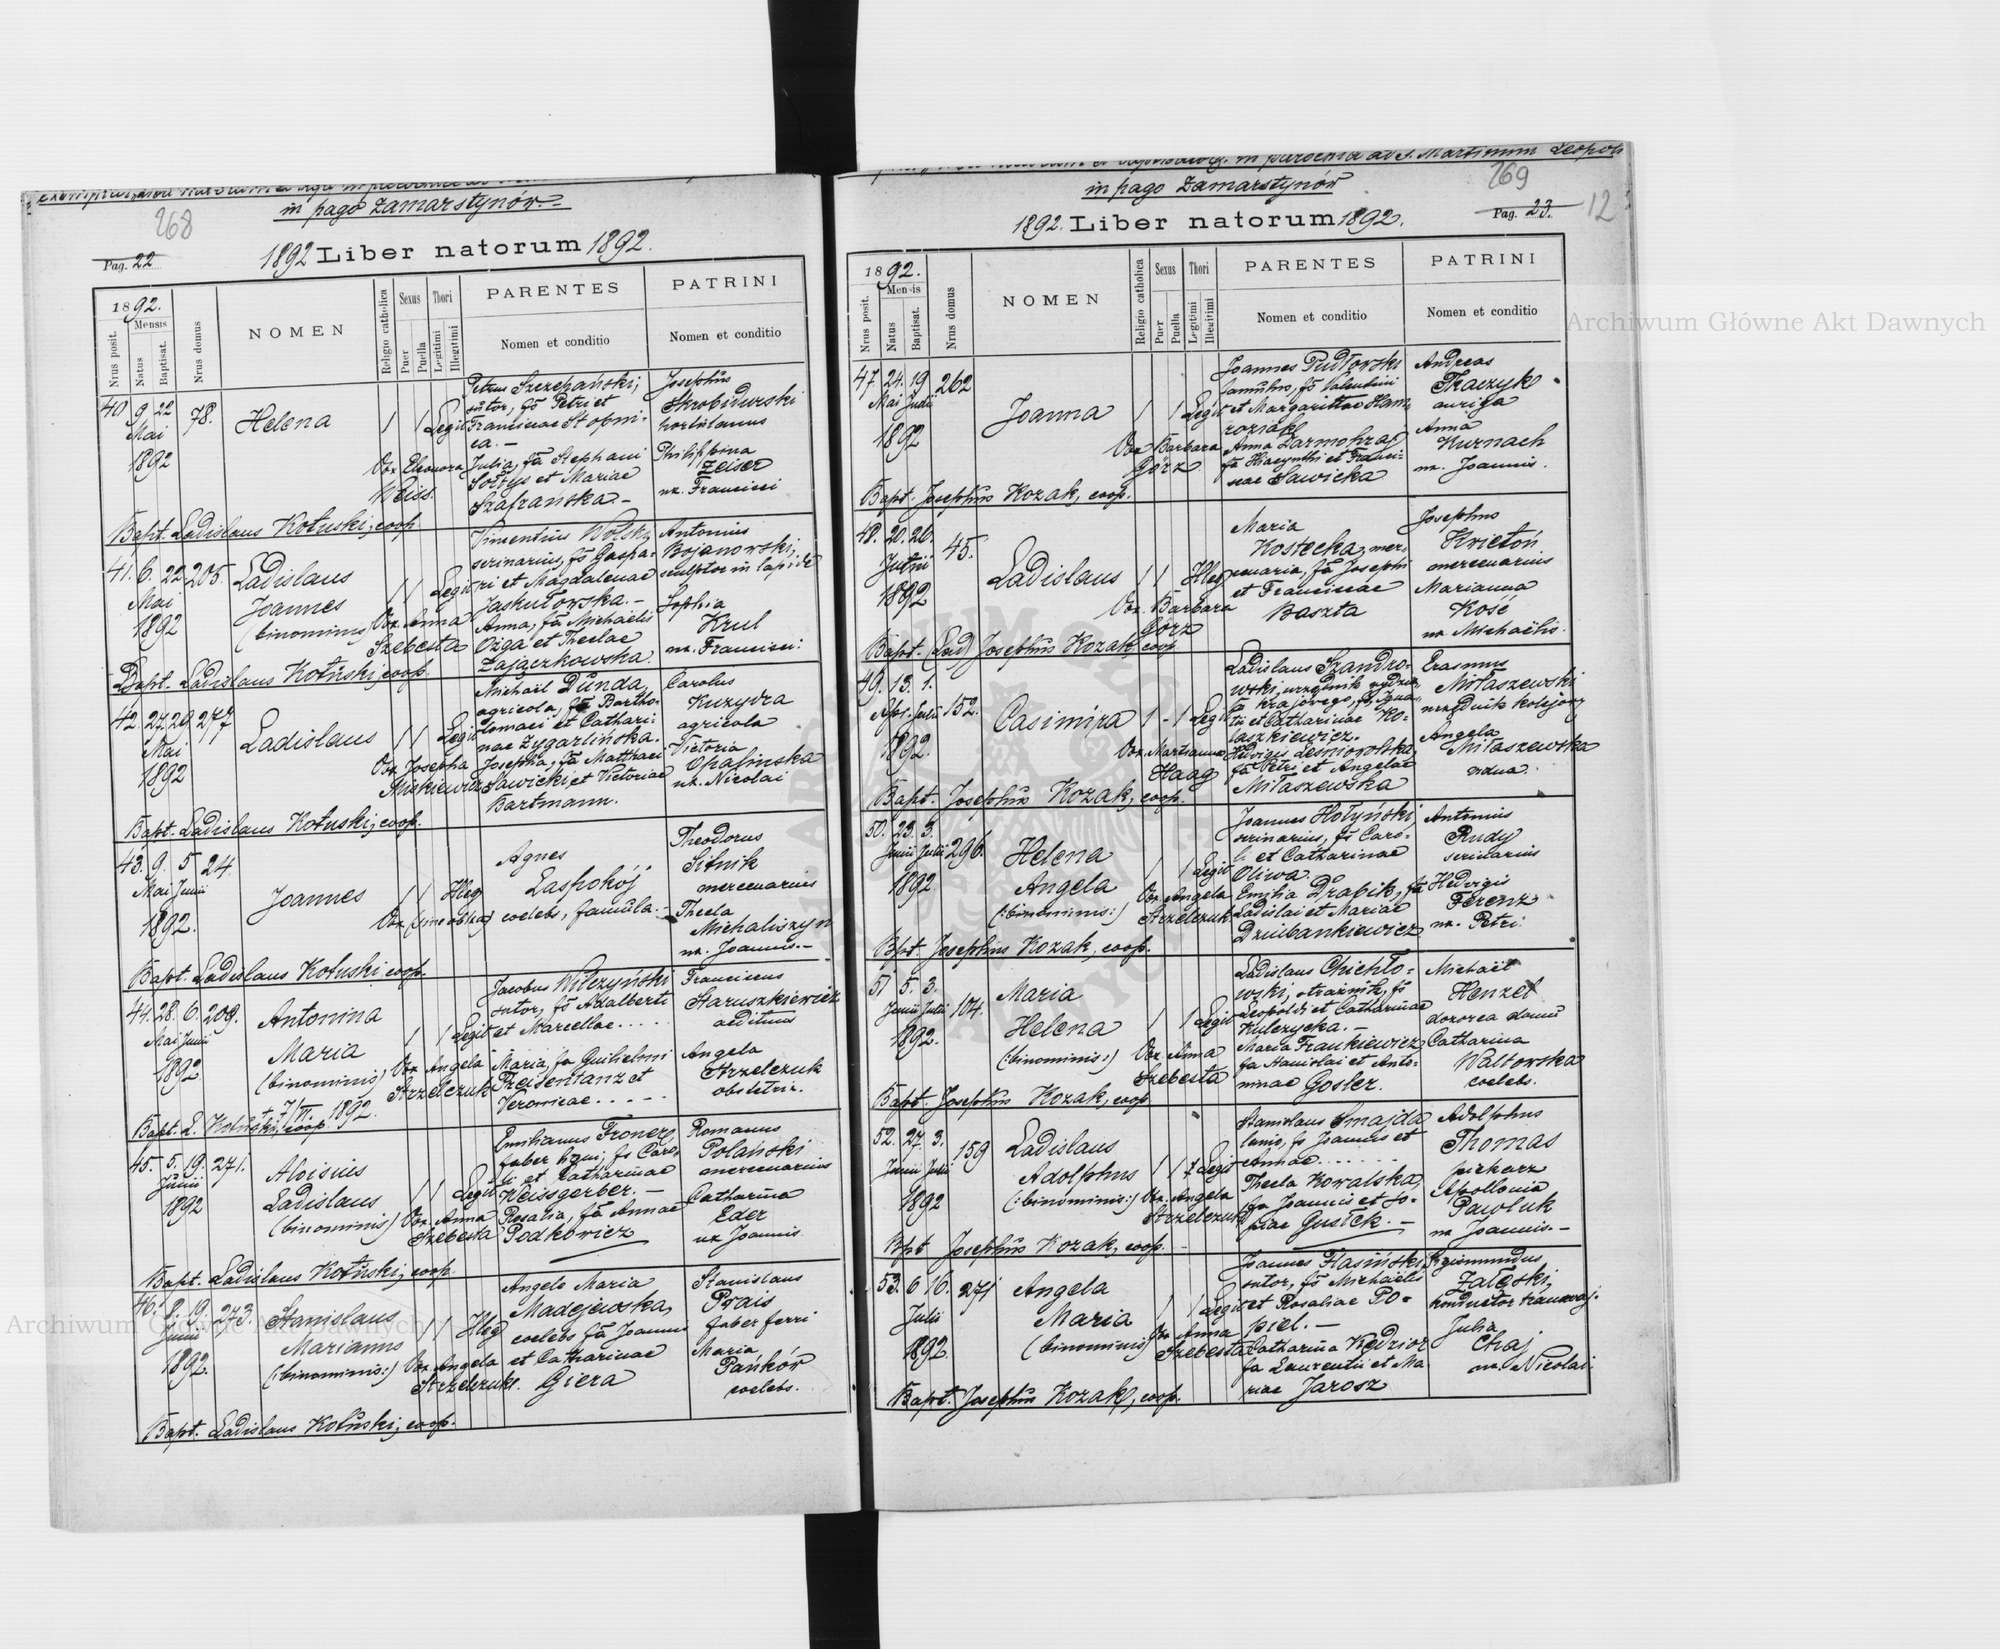 in pago Zamarstynów.
268
Pag. 22
1892 Liber natorum 1892.
1892.
Nrus posit.
Mensis
Natus
Baptisat.
Nrus domus
NOMEN
Religio catholica
Sexus
Puer
Puella
Thori
Legitimi
Illegitimi
PARENTES
Nomen et conditio
PATRINI
Nomen et conditio
40 9 22 78.
Mai
1892
Helena
1 1 Legit
Obx. Eleonora
Weiss.
Petrus Szczepański,
sutor, fs Petri et
Franciscae Stopni-
ca. -
Julia, fa Stephani
Sołtys et Mariae
Szafrańska -
Josephus
hortulanus
Philippina
Zeiser
ux. Francisci
Bapt. Ladislaus Kotuski, coop.
41. 6. 22 205
Mai
1892
Ladislaus
Joannes
(binominis)
1 1 Legit
Obx. Anna
Szebesta
Vincentius Wolski,
scrinarius, fs Gaspa-
ri et Magdalenae
Jaskułowska. -
Anna, fa Michaëlis
Oziga et Theclae
Zajączkowska.
Antonius
Bojanowski,
sculptor in lapide
Sophia
Krul
ux. Francisci:
Bapt. Ladislaus Kotuski, coop.
42. 27. 29. 277
Mai
1892
Ladislaus
1 1 Legit
Obx. Josepha
Miskiewicz
Michaël Dunda,
agricola, fs Bartho-
lomaei et Cathari-
nae Zygarlińska.
Josepha, fa Matthaei
Sawicki et Victoriae
Bartmann.
Carolus
Kuzydra
agricola
Victoria
Opalinska
ux. Nicolai
Bapt. Ladislaus Kotuski, coop.
43. 9. 5 24.
Mai Junii
1892.
Joannes
1 1 Illeg
Obx. (sine obstetr)
Agnes
Laspokój
coelebs, famula. -
Theodorus
Sitnik
mercenarius
Thecla
Michaliszyn
ux. Joannis. -
Bapt. Ladislaus Kotuski, coop.
44. 28. 6. 209.
Mai Junii
1892
Antonina
Maria
(binominis)
1 1 Legit
Obx. Angela
Strzelczuk
Jacobus Wilczyński
sutor, fs Adalberti
et Marcellae.....
Maria, fa Guilielmi
Freisentanz et
Veronicae.....
Franciscus
Staruszkiewicz
aedituus
Angela
Strzelczuk
obstetrix.
+ 7/VI. 1892.
Bapt. L. Kotuski, coop.
45. 5. 19. 271.
Junii
1892
Aloisius
Ladislaus
(binominis)
1 1 Legit
Obx. Anna
Szebesta
Emilianus Froner,
li et Catharinae
Weissgerber. -
Rosalia, fa Annae
Podkówicz
Romanus
Polański
mercenarius
Catharina
Eder
ux Joannis
Bapt. Ladislaus Kotuski, coop.
46. 8. 19. 273.
Junii
1892.
Stanislaus
Marianus
(:binominis:)
1 1 Illeg
Obx. Angela
Strzelczuk.
Angela Maria
Madejewska,
coelebs fa Joannis
et Catharinae
Giera
Stanislaus
Prais
faber ferri
Maria
Pańków
coelebs.
Bapt. Ladislaus Kotuski, coop.
in pago Zamarstynów
269
Pag. 23.
12
1892. Liber natorum 1892.
1892.
Nrus posit.
Mensis
Natus
Baptisat.
Nrus domus
NOMEN
Religio catholica
Sexus
Puer
Puella
Thori
Legitimi
Illegitimi
PARENTES
Nomen et conditio
PATRINI
Nomen et conditio
47. 24. 19 262
Mai Junii
1892
Joanna
1 1 Legit
Obx Barbara
Görz
Joannes Pudłowski
famulus, fs Valentini
et Margarithae Ham-
roziak
fa Hiacynthi et Franci-
scae Sawicka
Andreas
Tkaczyk
auriga
Anna
Kurnach
ux. Joannis.
Bapt. Josephus Kozak, coop.
48. 20. 26. 45.
Junii
1892
Ladislaus
1 1 Illeg
Obx. Barbara
Görz
Maria
Kostecka, mer-
cenaria, fa Josephi
et Franciscae
Baszta
Josephus
Krictoń
mercenarius
Marianna
Kość
ux. Michaëlis.
Bapt. (Lad) Josephus Kozak, coop.
49. 13. 1. 152.
Apr. Julii
1892.
Casimira
1 - 1 Legit
Obx. Marianna
Haag
Ladislaus Szandro-
wski, urzędnik wydzia-
łu krajowego, fs Igna-
tii et Catharinae Ko-
laszkiewicz.
Hedvigis Lesniowolska,
fa Petri et Angelae
Miłaszewska
Erasmus
Miłaszewski
urzędnik kolejowy
Angela
Miłaszewska
vidua.
Bapt. Josephus Kozak, coop.
50. 23. 3. 296.
Junii Julii
1892
Helena
Angela
(:binominis:)
1 1 Legit
Obx. Angela
Strzelczuk
Joannes Hołyński,
scrinarius, fs Caro-
li et Catharinae
Oliwa.
Emilia Drabik, fa
Ladislai et Mariae
Dziubankiewicz
Antonius
Rudy
scrinarius
Hedvigis
Ferenz
ux. Petri.
Bpt. Josephus Kozak, coop.
51 5. 3. 104.
Junii Julii
1892.
Maria
Helena
(:binominis:)
1 1 Legit
Obx. Anna
Szebesta
Ladislaus Chichło-
wski, strażnik, fs
Leopoldi et Catharinae
Kulczycka. -
Maria Frankiewicz
fa Stanislai et Anto-
ninae Gosler.
Michaël
Henzel
dozorca domu
Catharina
Waltowska
coelebs.
Bapt. Josephus Kozak, coop
52. 27. 3. 159
Junii Julii
1892
Ladislaus
Adolphus
(:binominis:)
1 1 Legit
Obx. Angela
Strzelczuk
Stanislaus Smajda
lanio, fs Joannis et
Annae.......
Thecla Kowalska,
fa Joannis et So-
phiae Gusłek. -
Adolphus
Thomas
piekarz
Apollonia
Pawluk
ux Joannis. -
Bpt Josephus Kozak, coop.
53. 6 16. 271
Julii
1892.
Angela
Maria
(binominis)
1 1 Legit
Obx Anna
Szebesta
Joannes Flasiński,
sutor, fs Michaëlis
et Rosaliae Po-
piel. -
Catharina Kędzior
fa Laurentii et Ma-
riae Jarosz
Sigismundus
Załęski,
konductor tramwaj.
Julia
Chaj
ux. Nicolai.
Bapt. Josephus Kozak, coop.
Archiwum Główne Akt Dawnych
Archiwum Główne Akt Dawnych